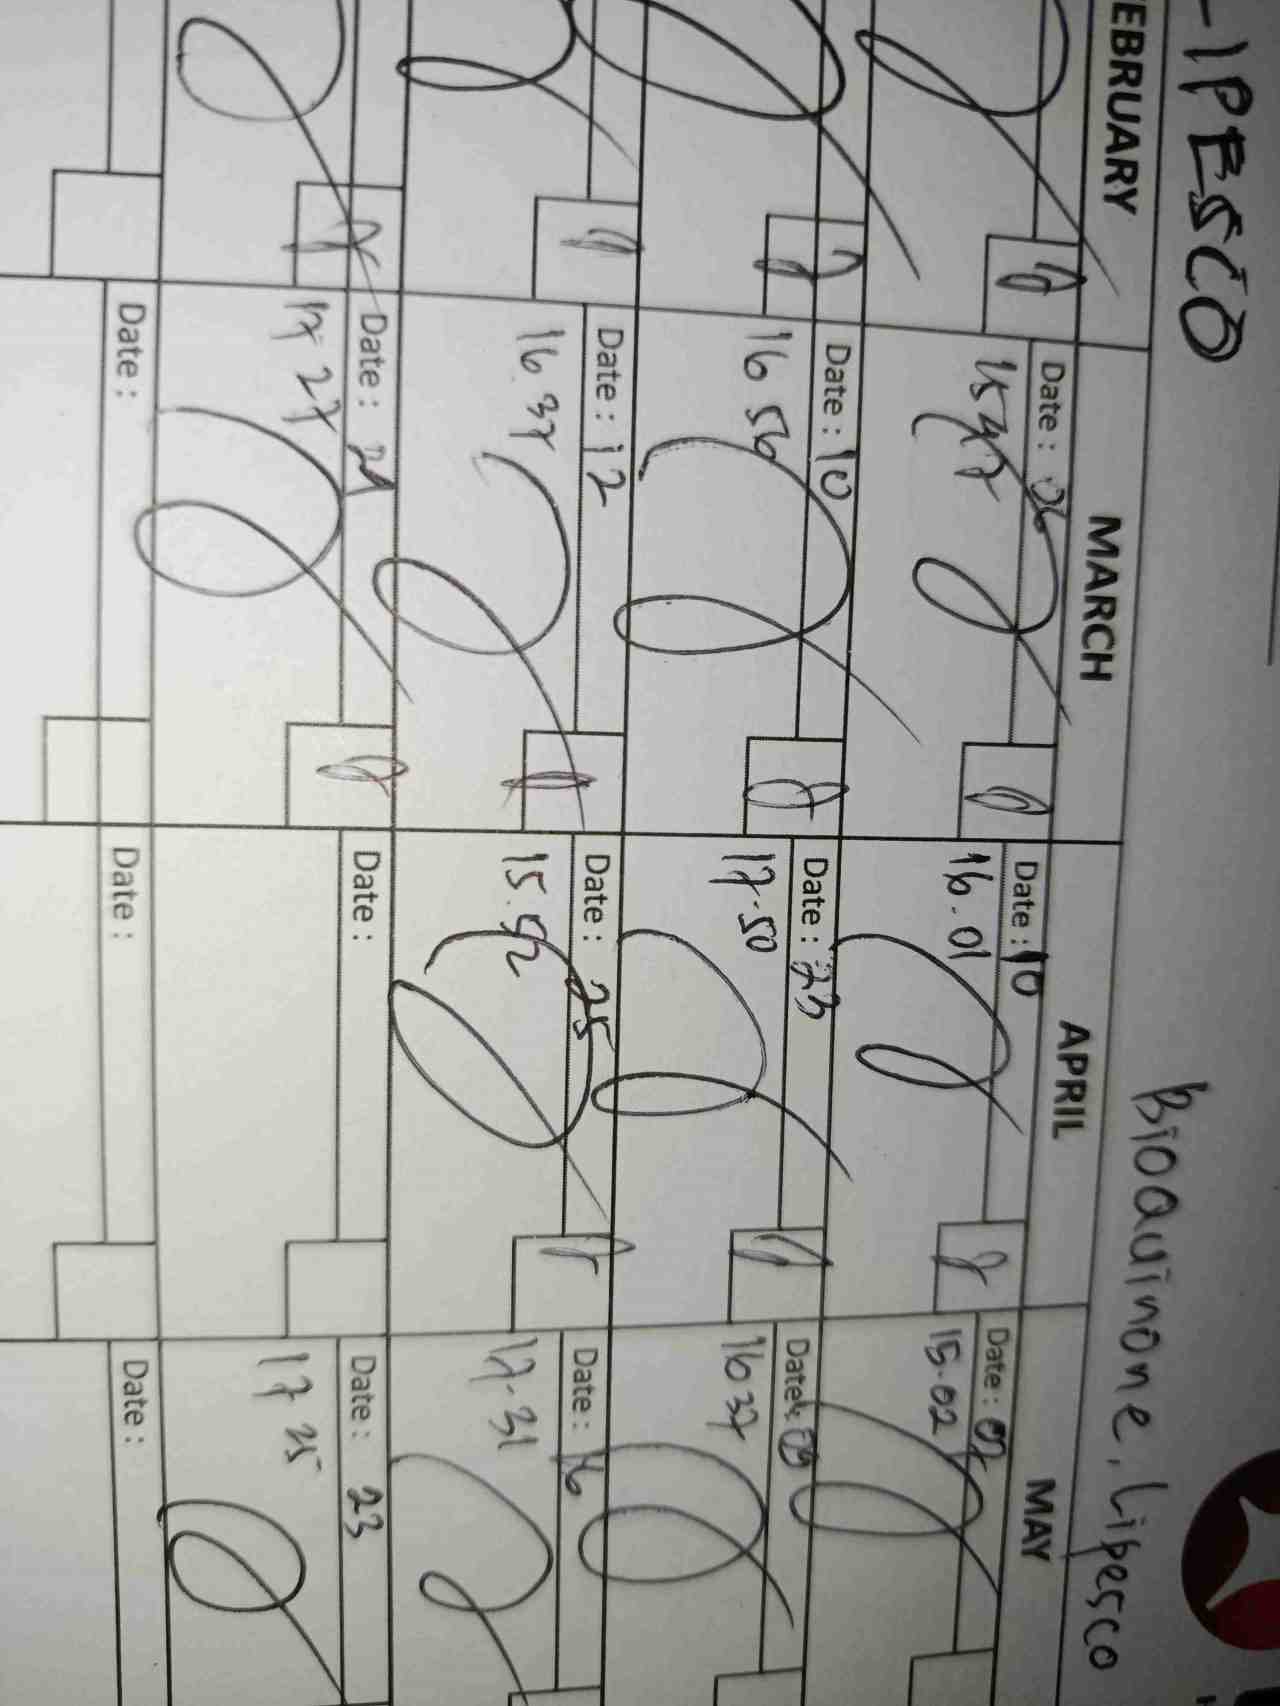 -IPESCO
Bioquinone, Lipesco
EBRUARY MARCH APRIL MAY
Date : 06 Date : 10 Date : 07
15 47 16.01 15.02
Date : 10 Date : 23 Date : 09
16 56 17.50 16 37
Date : 12 Date : 25 Date : 16
16.37 15.52 17.31
Date : 21 Date : Date : 23
17 27 17 35
Date : Date : Date :